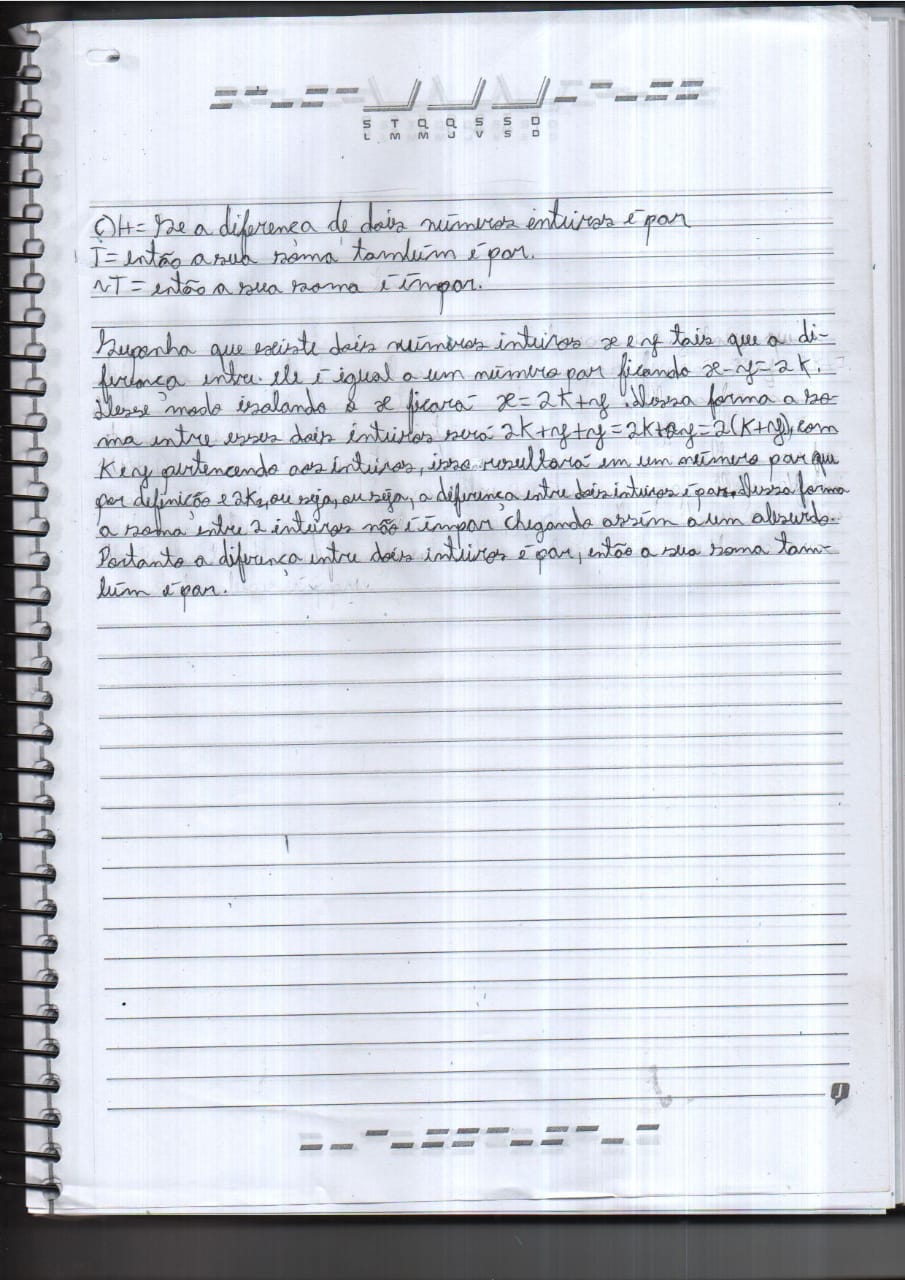 S T Q Q S S D
L M M J V S D
C) H = Se a diferença de dois números inteiros é par
T = então a sua soma também é par.
~T = então a sua soma é ímpar.
Suponha que existe dois números inteiros x e y tais que a di-
ferença entre ele é igual a um número par ficando x-y=2k.
Desse modo isolando o x ficará x=2k+y. Dessa forma a so-
ma entre esses dois inteiros será 2k+y+y=2k+2y=2(k+y), com
K e y pertencendo aos inteiros, isso resultará em um número par que
por definição é 2k₂, ou seja, ou seja, a diferença entre dois inteiros é par. Dessa forma
a soma entre 2 inteiros não é ímpar chegando assim a um absurdo.
Portanto a diferença entre dois inteiros é par, então a sua soma tam-
bém é par.